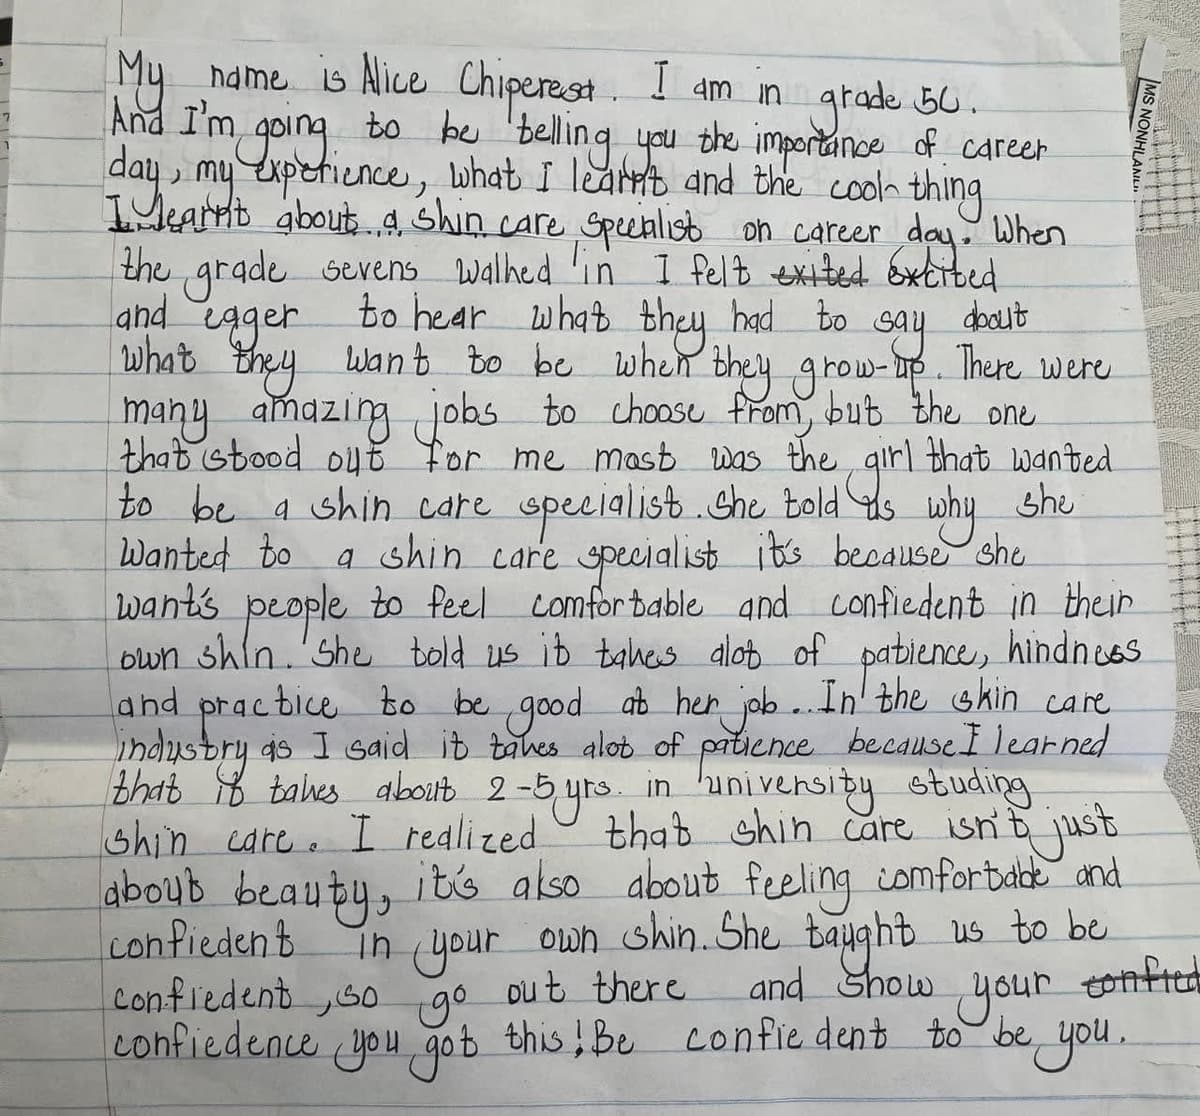 My name is Alice Chiperesa. I am in grade 5C.
And I'm going to be telling you the importance of career
day, my experience, what I learnt and the cool thing
I learnt about a skin care specialist on career day. When
the grade sevens walked in I felt exited excited
and egger to hear what they had to say about
what they want to be when they grow-up. There were
many amazing jobs to choose from, but the one
that stood out for me most was the girl that wanted
to be a skin care specialist. She told us why she
wanted to a skin care specialist it's because she
want's people to feel comfortable and confiedent in their
own skin. She told us it takes alot of patience, kindness
and practice to be good at her job.. In the skin care
industry as I said it takes alot of patience because I learned
that it takes about 2-5 yrs. in university studing
skin care. I realized that skin care isn't just
about beauty, it's also about feeling comfortable and
confiedent in your own skin. She taught us to be
confiedent, so go out there and show your confied
confiedence you got this! Be confiedent to be you.
MS NONHLANHL